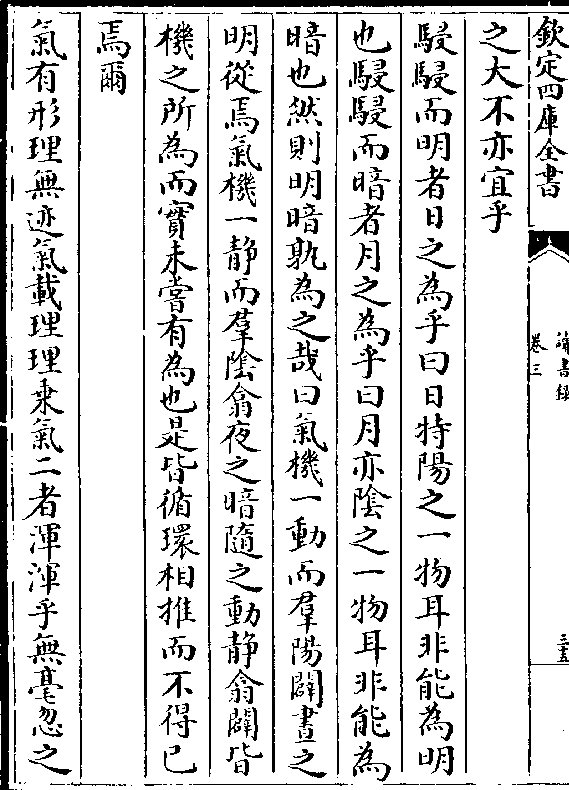 欽定四庫全書
讀書錄
卷三
三五
之大不亦宜乎
駸駸而明者日之為乎曰日特陽之一物耳非能為明
也駸駸而暗者月之為乎曰月亦陰之一物耳非能為
暗也然則明暗孰為之哉曰氣機一動而羣陽闢晝之
明從焉氣機一静而羣陰翕夜之暗隨之動静翕闢皆
機之所為而實未嘗有為也是皆循環相推而不得已
焉爾
氣有形理無迹氣載理理乗氣二者渾渾乎無毫忽之